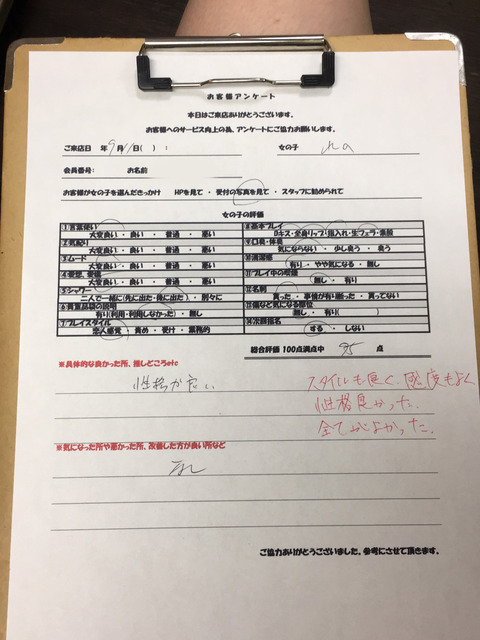 お客様アンケート
本日はご来店ありがとうございます。
お客様へのサービス向上の為、アンケートにご協力お願いします。
ご来店日 年 9月 日( ) : 女の子
会員番号: お名前
お客様が女の子を選んださっかけ HPを見て ・ 受付の写真を見て ・ スタッフに勧められて
女の子の評価
①言葉使い
大変良い ・ 良い ・ 普通 ・ 悪い
②気配り
大変良い ・ 良い ・ 普通 ・ 悪い
③ムード
大変良い ・ 良い ・ 普通 ・ 悪い
④愛想、愛嬌
大変良い ・ 良い ・ 普通 ・ 悪い
⑤シャワー
二人で一緒に(先に出た・後に出た) ・ 別々に
⑥貴重品袋の説明
有り(利用・利用しなかった) ・ 無し
⑦プレイスタイル
恋人感覚 ・ 責め ・ 受け ・ 業務的
⑧基本プレイ
Dキス・全身リップ・指入れ・生フェラ・素股
⑨口臭・体臭
気にならない ・ 少し臭う ・ 臭う
⑩清潔感
有り ・ やや気になる ・ 無し
⑪プレイ中の喫煙
無し ・ 有り
⑫名刺
貰った ・ 事情が有り断った ・ 貰ってない
⑬傷など気になる部位
無し ・ 有り( )
⑭次回指名
する ・ しない
総合評価 100点満点中 95 点
※具体的な良かった所、推しどころetc
性格が良い
スタイルも良く、感度もよく
性格良かった。
全てがよかった。
※気になった所や悪かった所、改善した方が良い所など
なし
ご協力ありがとうございました。参考にさせて頂きます。